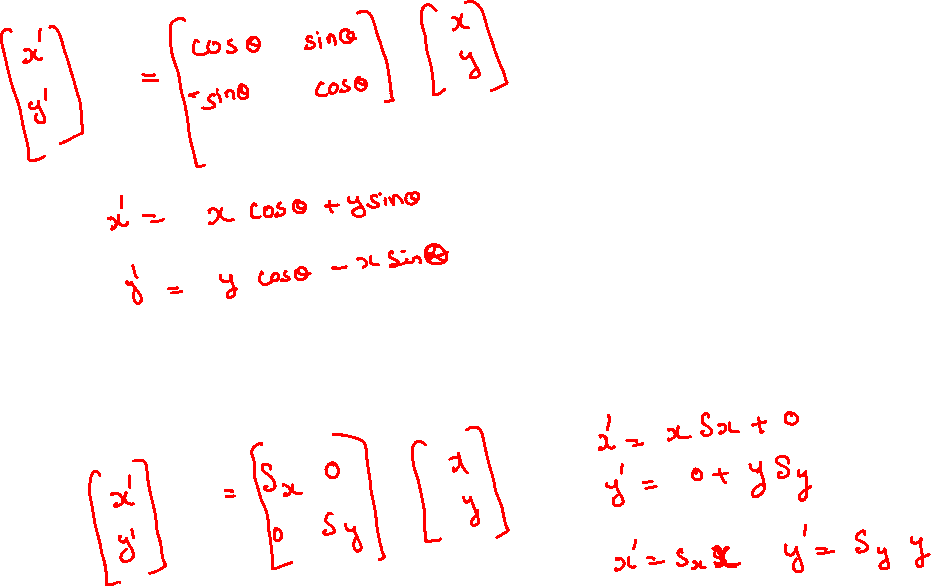 [x' y'] = [cosθ sinθ -sinθ cosθ] [x y]
x' = x cosθ + y sinθ
y' = y cosθ - x sinθ
[x' y'] = [Sx 0 0 Sy] [x y]
x' = x Sx + 0
y' = 0 + y Sy
x' = Sx x y' = Sy y